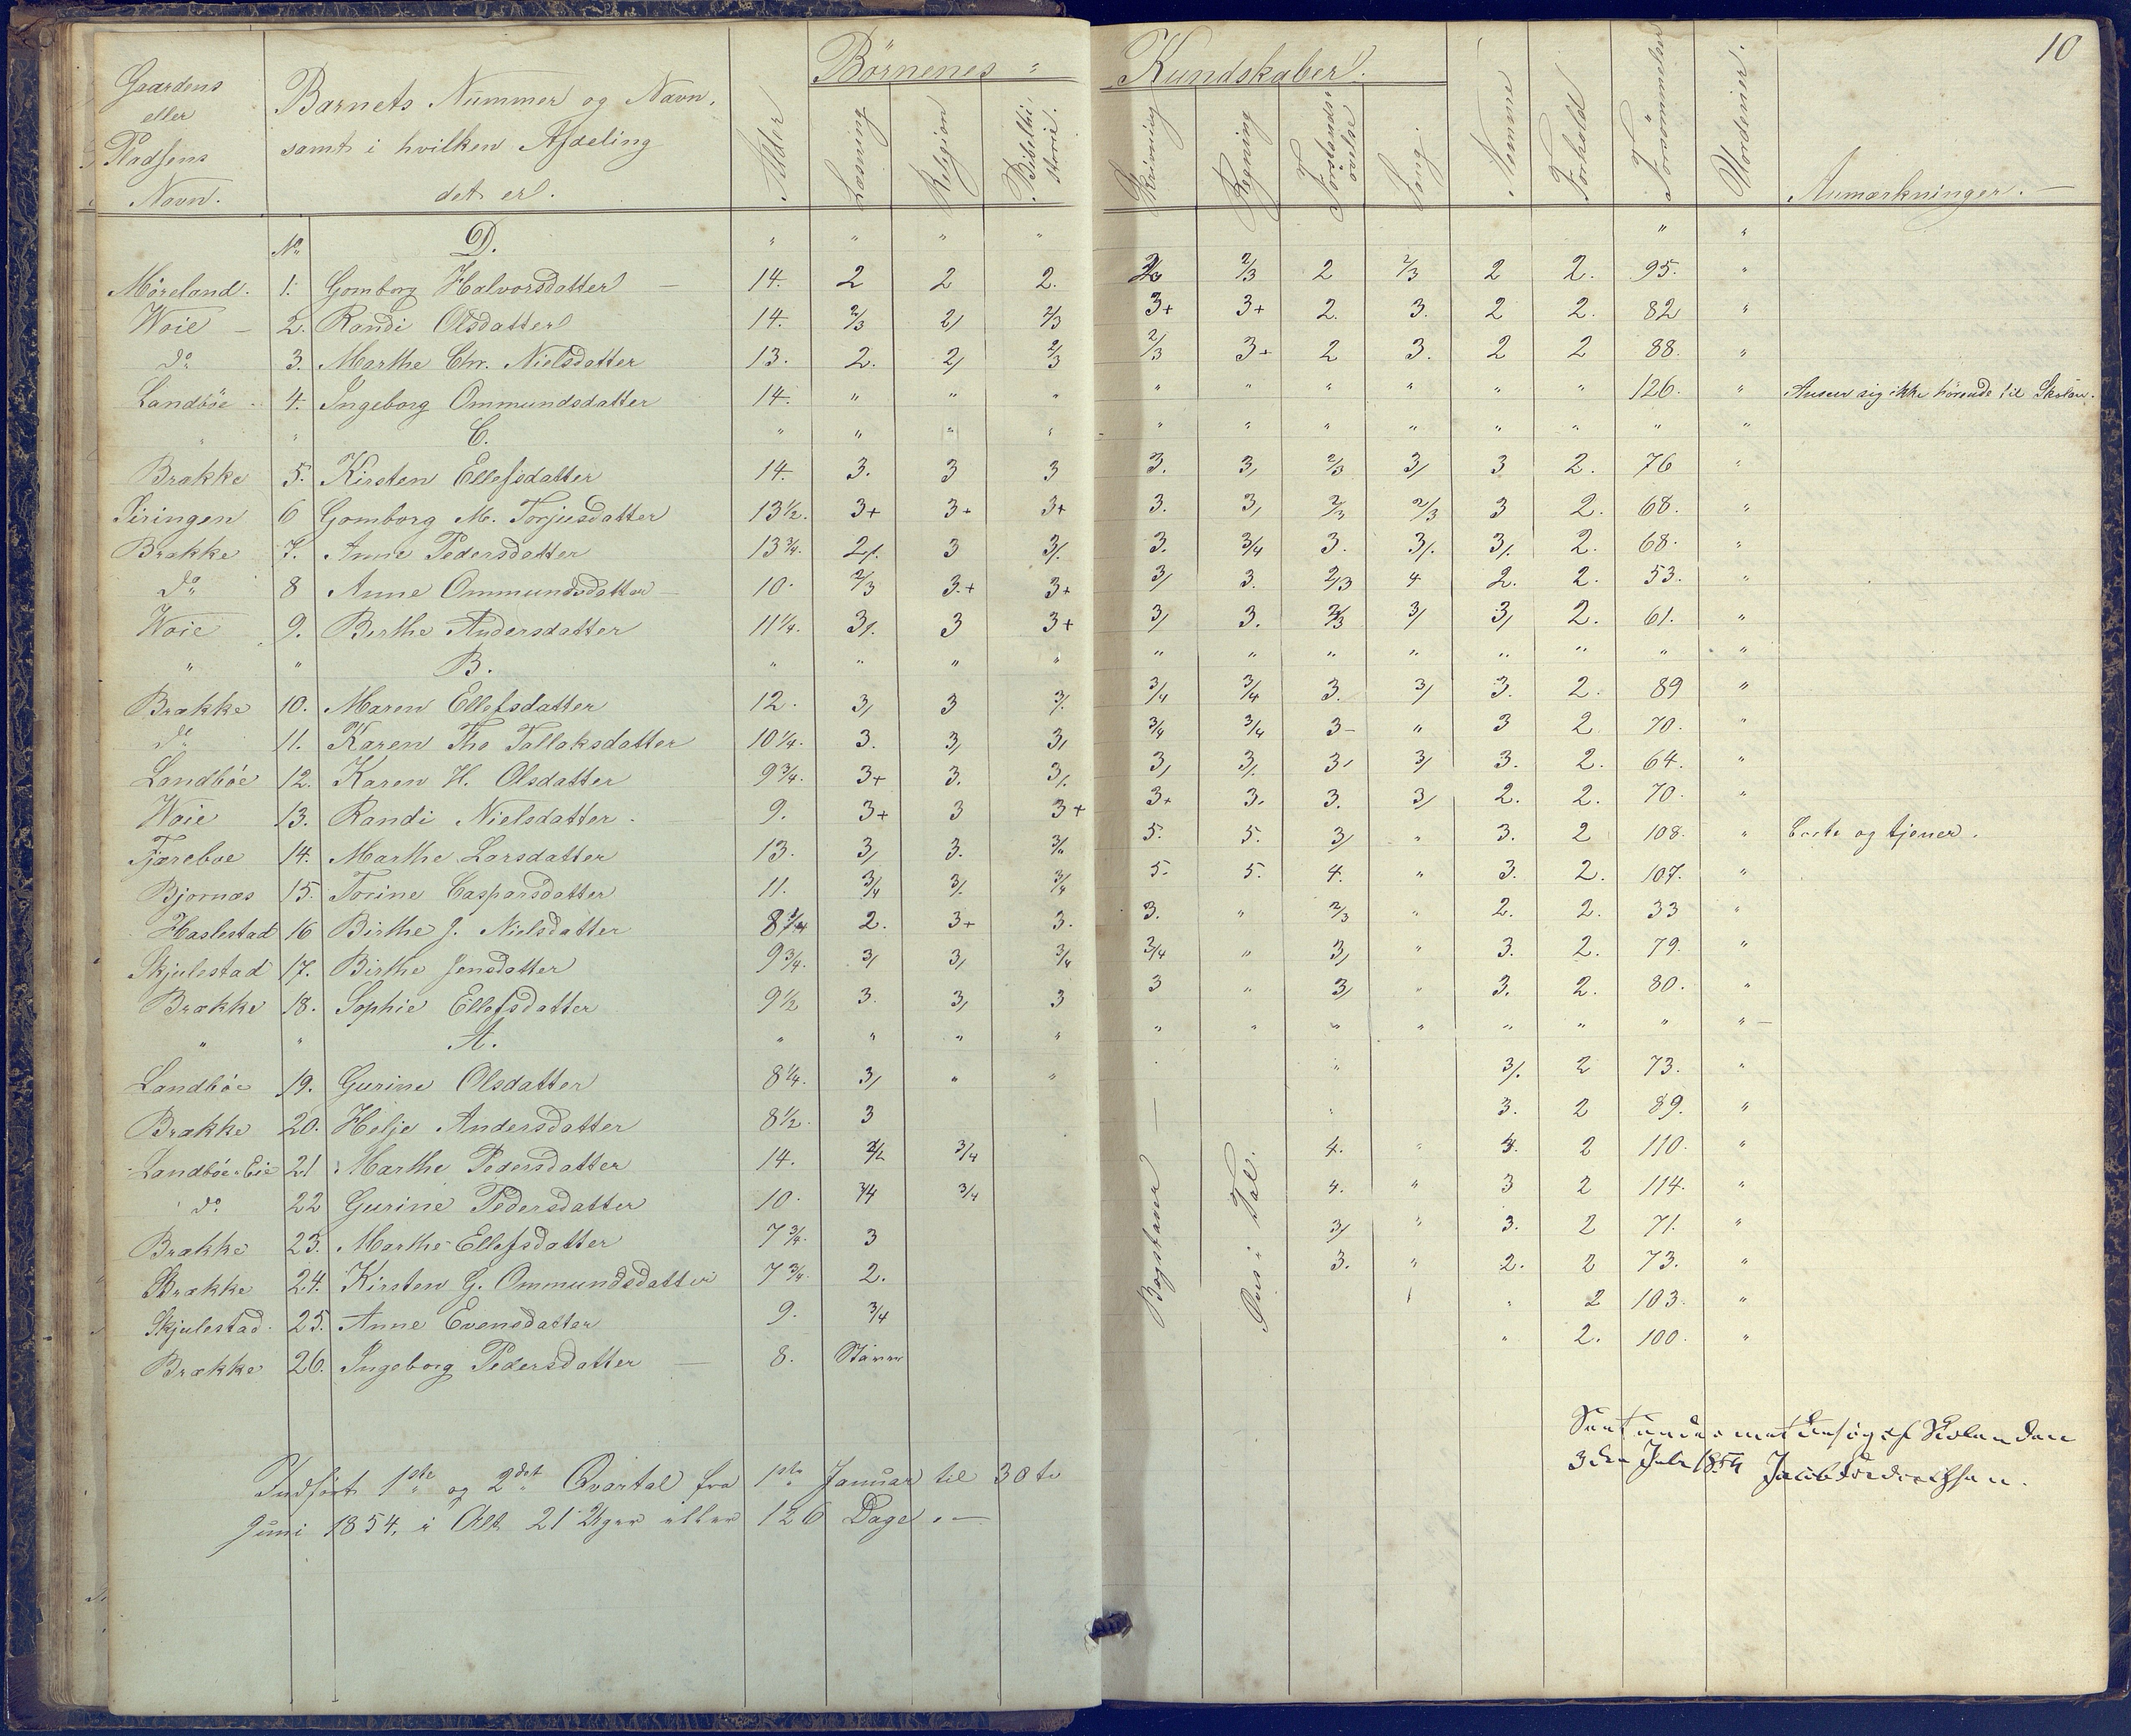 10
Gaardens eller Pladsens Navn.
Barnets Nummer og Navn, samt i hvilken Afdeling det er.
Alder
Börnenes Kundskaber.
Læsning Religion Bibelhistorie. Skrivning Regning Forstandsövelse Sang. Nemme Forhold Forsömmelse Anmærkninger. —
No. D. " " " " " "
Möreland. 1. Gomborg Halvorsdatter — 14. 2 2 2. 2/3 2/3 2 2/3 2 2. 95. "
Woie — 2. Randi Olsdatter 14. 2/3 2/ 2/3 3+ 3+ 2. 3. 2 2. 82 "
do 3. Marthe Chr. Nielsdatter 13. 2. 2/ 2/3 2/3 3+ 2 3. 2 2 88. "
Landböe 4. Ingeborg Ommundsdatter 14. " " " " " " " " " 126. " Anser sig ikke hörende til Skolen.
" " C. " " " " " " " " " " " "
Brække 5. Kirsten Ellefsdatter 14. 3. 3 3 3. 3/ 2/3 3/ 3 2. 76 "
Siringen 6 Gomborg M. Torjusdatter 13 1/2. 3+ 3+ 3+ 3. 3/ 2/3 2/3 3 2. 68. "
Brække 7. Anne Pedersdatter 13 3/4. 2/. 3 3/. 3. 3/4 3. 3/. 3/. 2. 68. "
do 8 Anne Ommundsdatter — 10. 2/3 3+ 3+ 3/ 3. 2/3 4 2. 2. 53. "
Woie 9. Birthe Andersdatter 11 1/4. 3/. 3 3+ 3/ 3. 2/3 3/ 3/ 2. 61. "
" " B. " " " " " " " " " " " "
Brække 10. Maren Ellefsdatter 12. 3/ 3 3/. 3/4 3/4 3. 3/ 3. 2. 89 "
do 11. Karen Tho Tallaksdatter 10 1/4. 3. 3/ 3/ 3/4 3/4 3- " 3 2 70. "
Landböe 12. Karen H. Olsdatter 9 3/4. 3+ 3. 3/. 3/ 3/. 3/ 3/ 3. 2. 64. "
Woie 13. Randi Nielsdatter. 9. 3+ 3 3+ 3+ 3. 3. 3/ 2. 2. 70. "
Fjæreboe 14. Marthe Larsdatter 13. 3/ 3. 3/4 5. 5. 3/ " 3. 2 108. " Borte og tjener.
Bjornæs 15. Torine Casparsdatter 11. 3/4 3/. 3/4 5. 5. 4. " 3. 2. 107. "
Haslestad 16 Birthe J. Nielsdatter 8 1/4 2. 3+ 3. 3. " 2/3 " 2. 2. 33 "
Skjulestad 17. Birthe Jensdatter 9 3/4. 3/ 3/ 3/4 3/4 " 3/ " 3. 2. 79. "
Brække 18. Sophie Ellefsdatter 9 1/2 3. 3/ 3 3 " 3/ " 3. 2. 80. "
" " A. " " " " " " " " " " " " —
Landböe 19. Gurine Olsdatter 8 1/4. 3/ " " " 3/. 2 73. "
Brække 20. Helje Andersdatter 8 1/2. 3 " 3. 2 89. "
Landböe Eie 21 Marthe Pedersdatter 14. 3/4 4. " 4. 2 110. "
do 22 Gurine Pedersdatter 10. 3/4 3/4 4. " 3 2 114. "
Brække 23. Marthe Ellefsdatter 7 3/4. 3 3/ " 3. 2 71. "
Brække 24. Kirsten G. Ommundsdatter 7 3/4. 2. 3. " 2. 2 73. "
Skjulestad. 25. Anne Evensdatter 9. 3/4 " 2 103. "
Brække 26. Ingeborg Pedersdatter — 8. Staver " 2. 100. "
Bogstaver —
i Tal.
Indfört 1ste og 2det Qvartal fra 1ste Januar til 30te
Juni 1854, i Alt 21 Uger eller 126 Dage. —
Skolen den
3die Juli 1854